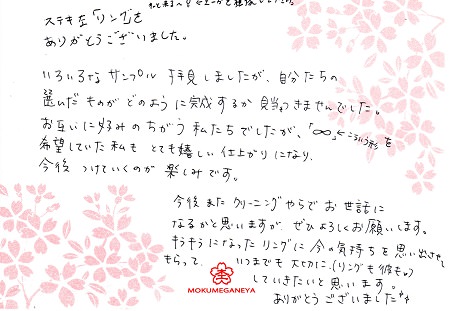 ステキな「リング」を
ありがとうございました。
いろいろなサンプル 拝見しましたが、自分たちの
選んだものがどのように完成するか見当つきませんでした。
お互いに好みのちがう私たちでしたが、「∞」←こういう形を
希望していた私も とても嬉しい仕上がりになり、
今後 つけていくのが 楽しみです。
今後また クリーニングやらで お世話に
なるかと思いますが、ぜひよろしくお願いします。
キラキラになったリングに今の気持ちを思い出させて
もらって、いつまでも大切に、(リングも彼も♡)
していきたいと思います。
ありがとうございました
MOKUMEGANEYA